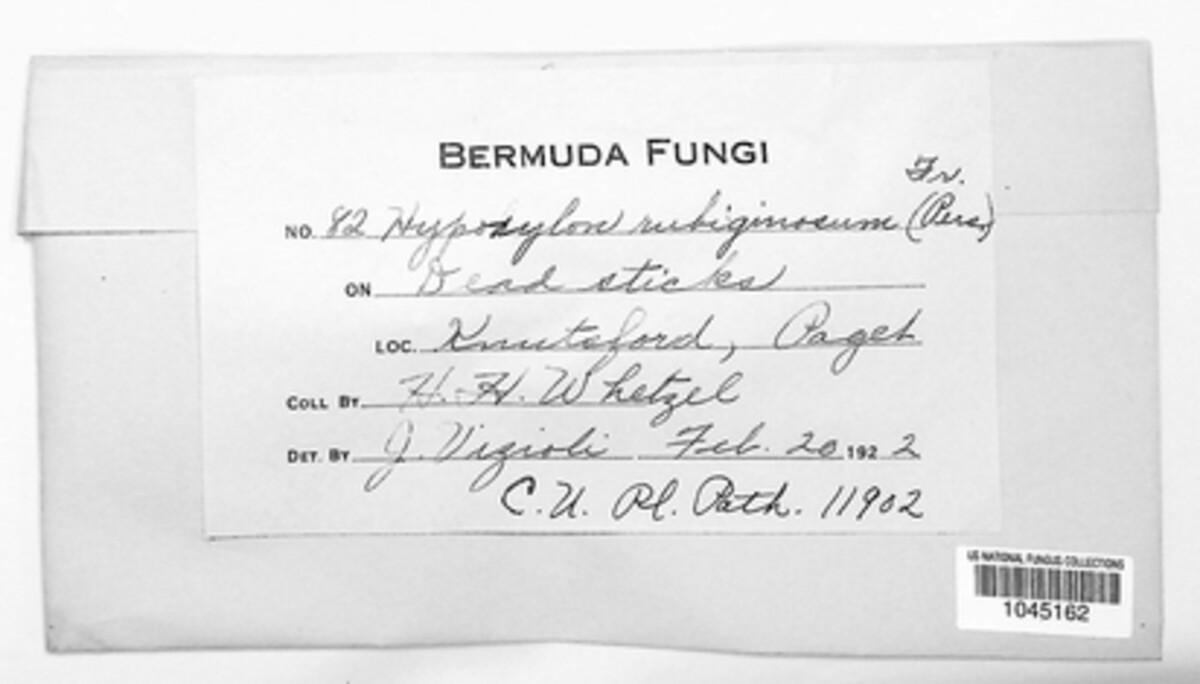 BERMUDA FUNGI
NO. 82 Hypoxylon rubiginosum (Pers.) Fr.
ON Dead sticks
LOC. Knutsford, Paget
COLL BY H. H. Whetzel
DET. BY J. Vizioli Feb. 20 1922
C. U. Pl. Path. 11902
US NATIONAL FUNGUS COLLECTIONS
1045162